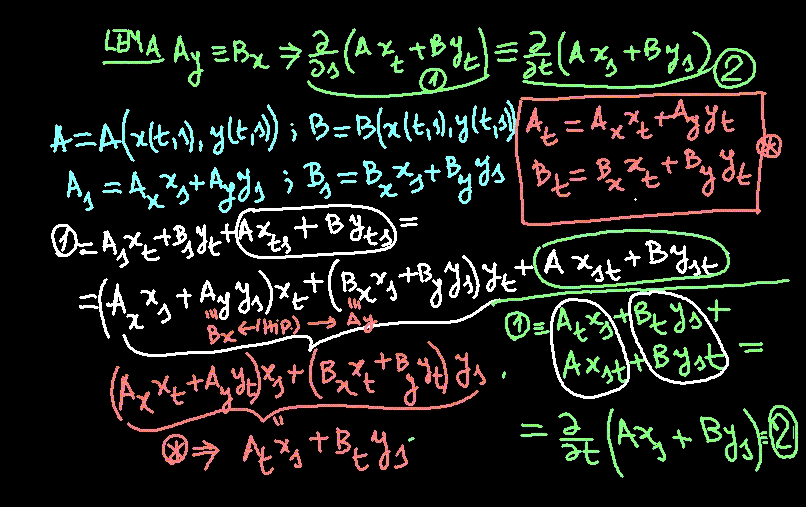 LEMA A_y ≡ B_x ⇒ ∂/∂s (A x_t + B y_t) ≡ ∂/∂t (A x_s + B y_s) ②
①
A = A(x(t,s), y(t,s)) ; B = B(x(t,s), y(t,s))
A_s = A_x x_s + A_y y_s ; B_s = B_x x_s + B_y y_s
A_t = A_x x_t + A_y y_t
B_t = B_x x_t + B_y y_t
*
① = A_s x_t + B_s y_t + A x_ts + B y_ts =
= (A_x x_s + A_y y_s) x_t + (B_x x_s + B_y y_s) y_t + A x_st + B y_st
≡ B_x ← (HIP.) → ≡ A_y
(A_x x_t + A_y y_t) x_s + (B_x x_t + B_y y_t) y_s .
=
* ⇒ A_t x_s + B_t y_s .
① ≡ A_t x_s + B_t y_s +
A x_st + B y_st =
= ∂/∂t (A x_s + B y_s) ≡ ②